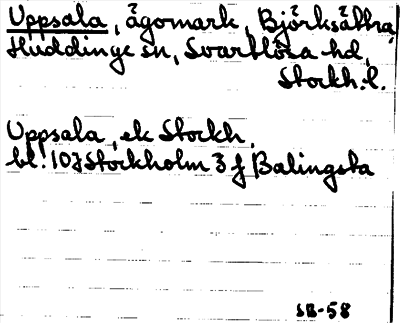 Uppsala, ägomark, Björksättra,
Huddinge sn, Svartlösa hd,
Stockh.l.
Uppsala, ek Stockh.
bl. 107 Stockholm 3 f Balingsta
SB-58